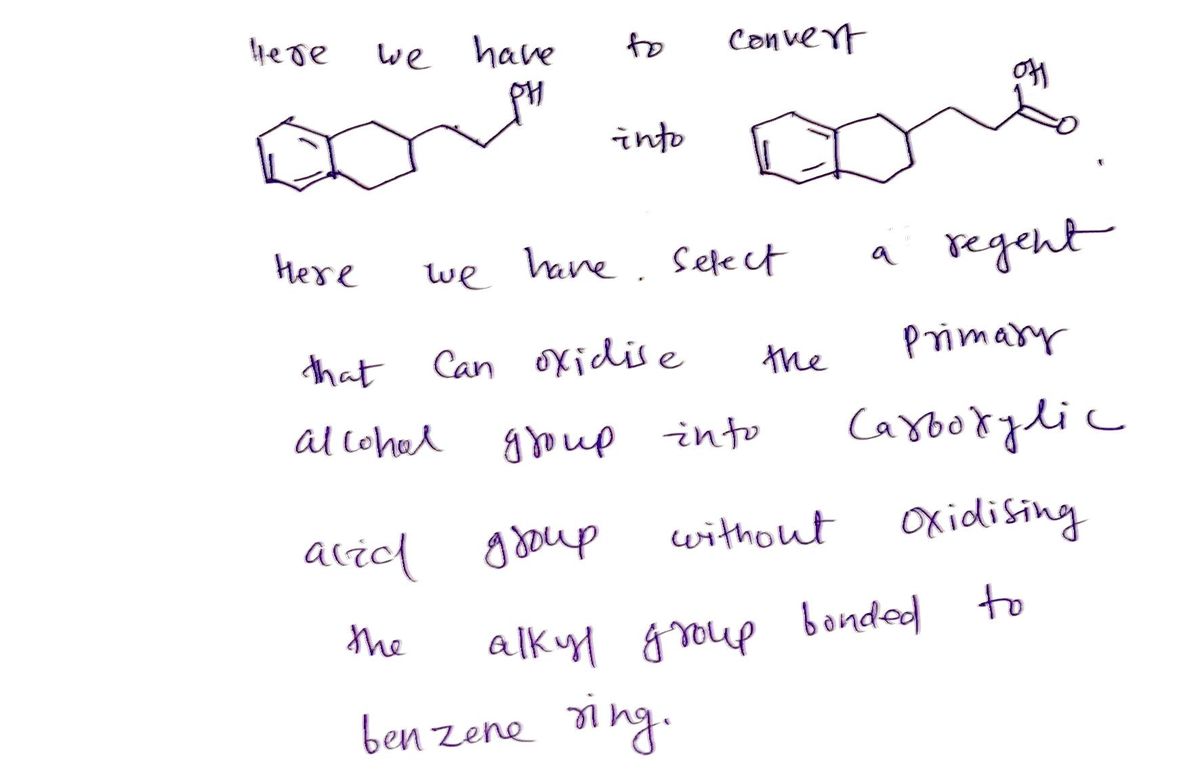 Here we have to convert
OH
OH
into
O
.
Here we have. select a regent
that can oxidise the primary
alcohol group into Carboxylic
acid group without oxidising
the alkyl group bonded to
benzene ring.